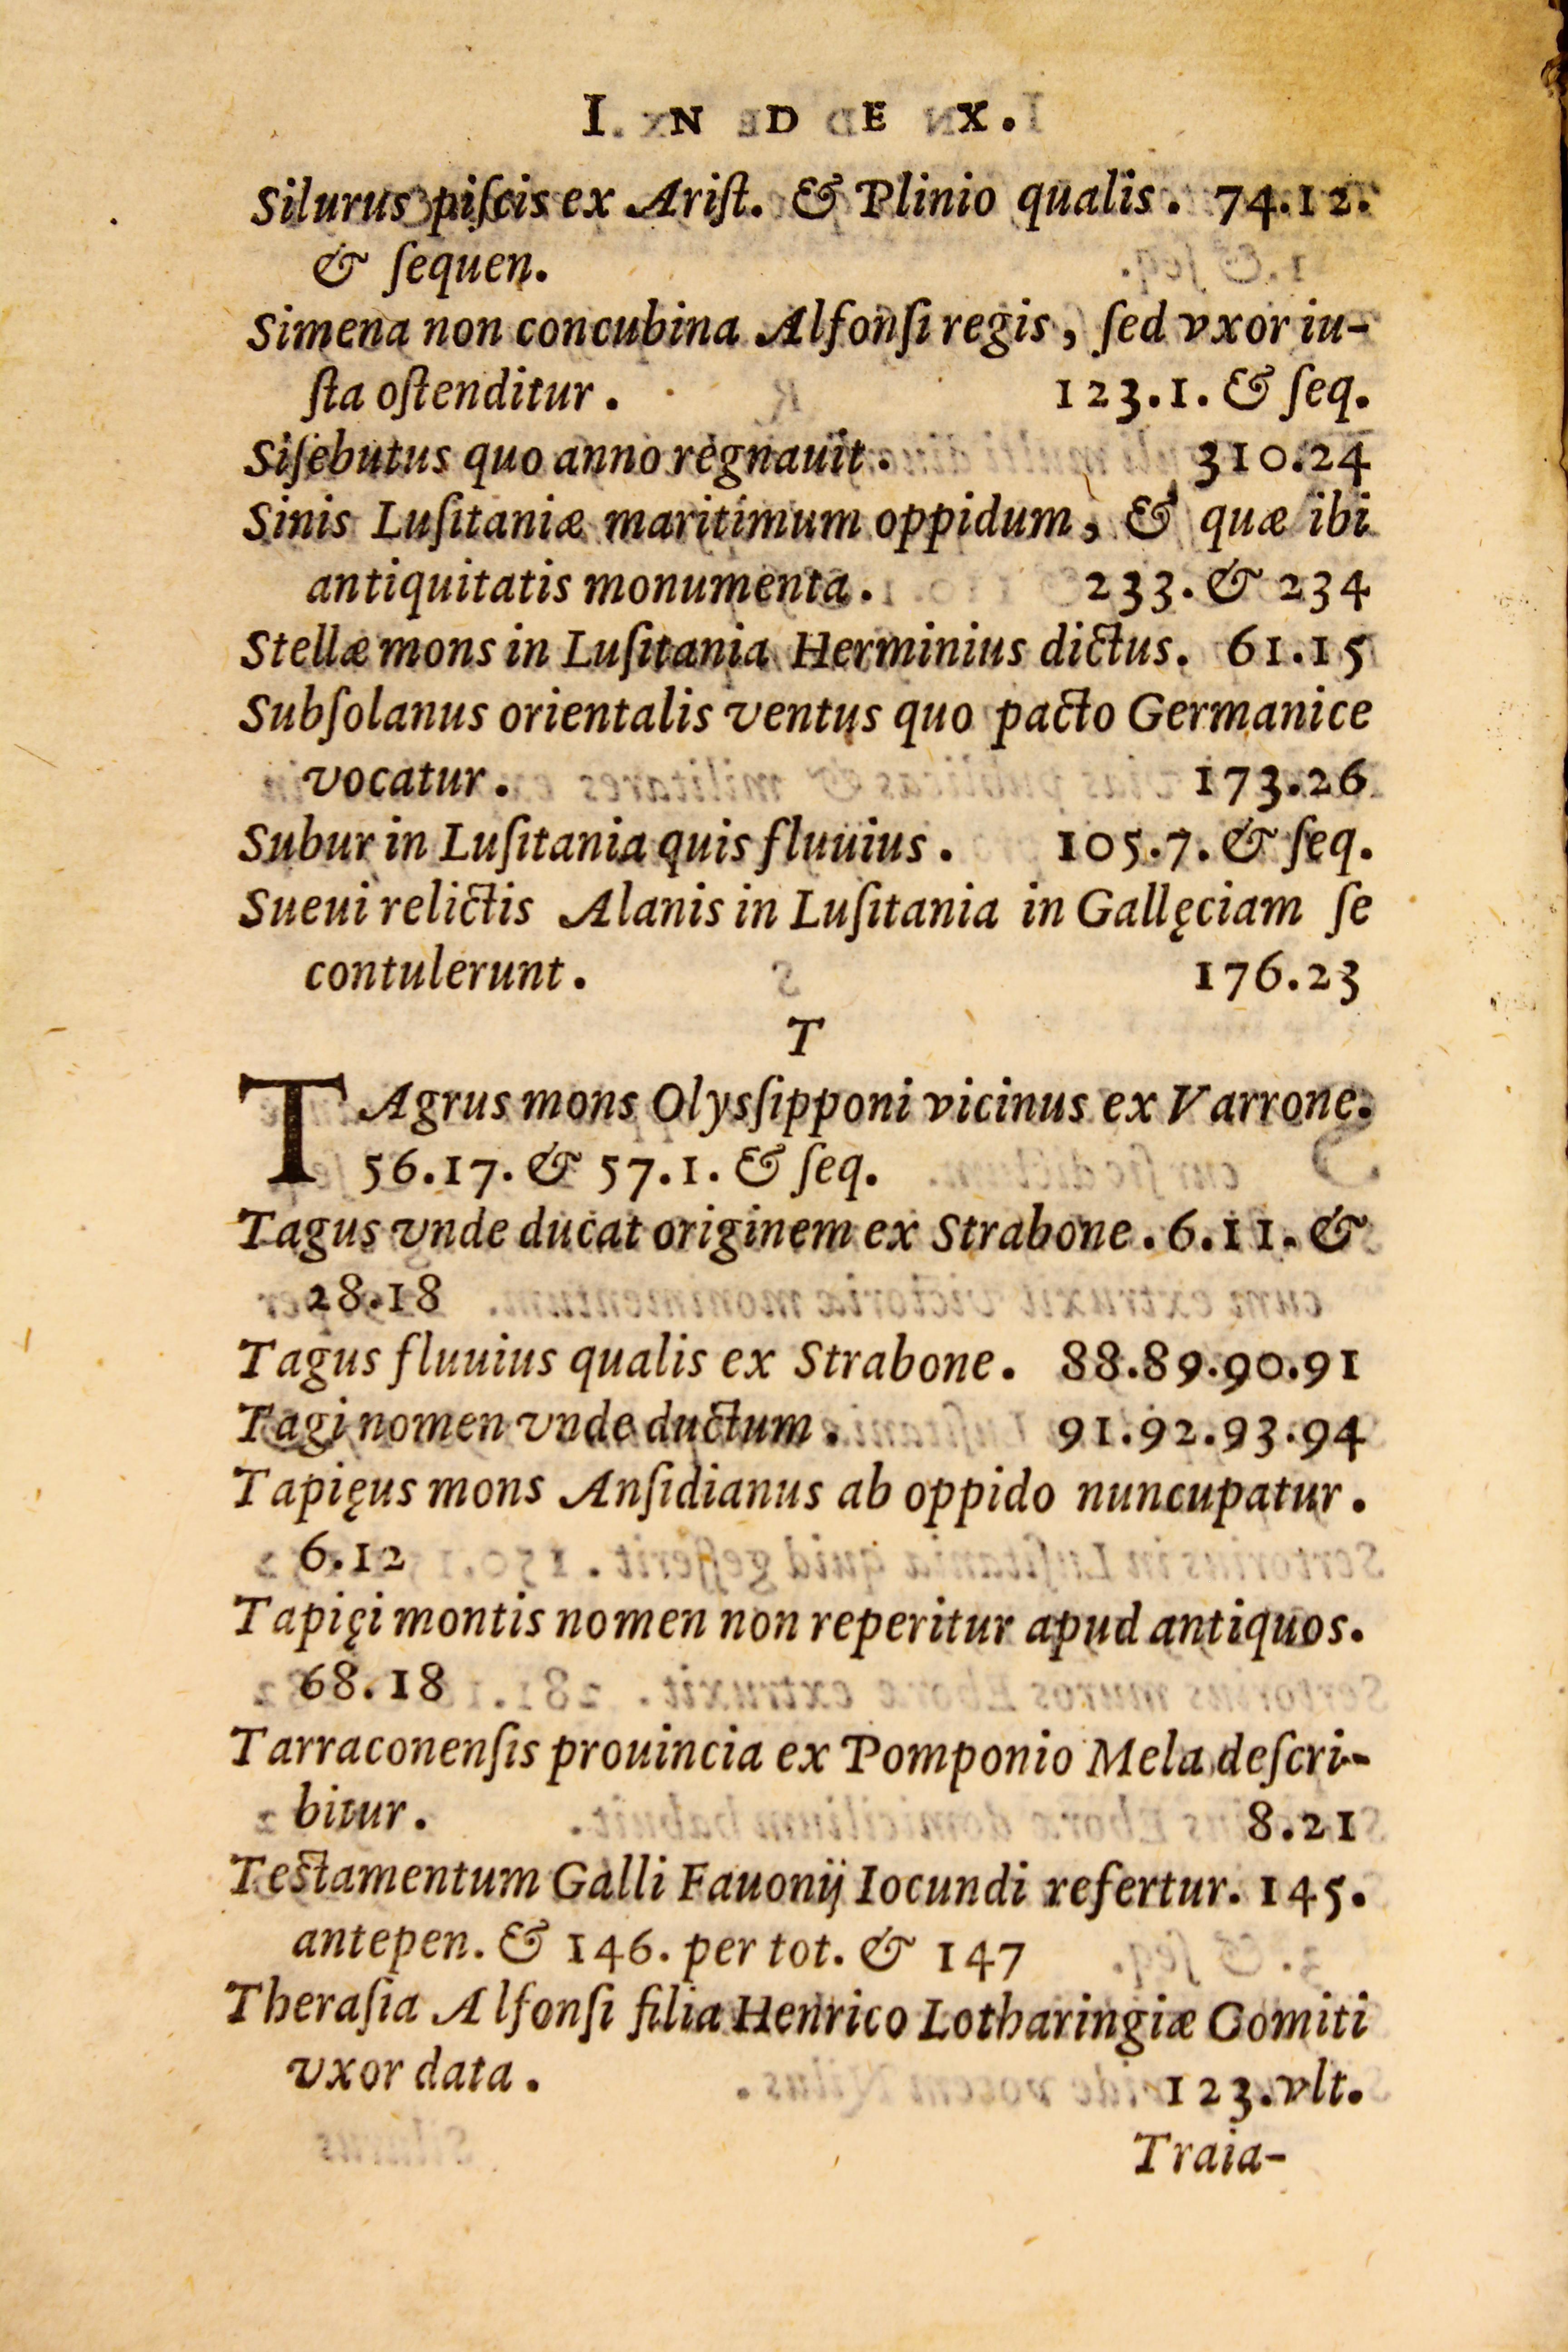 I N D E X.
Silurus piſcis ex Ariſt. & Plinio qualis. 74.12.
& ſequen.
Simena non concubina Alfonſi regis, ſed vxor iu-
ſta oſtenditur. 123.1. & ſeq.
Siſebutus quo anno regnauit. 310.24
Sinis Luſitaniæ maritimum oppidum, & quæ ibi
antiquitatis monumenta. 233. & 234
Stellæ mons in Luſitania Herminius dictus. 61.15
Subſolanus orientalis ventus quo pacto Germanice
vocatur. 173.26
Subur in Luſitania quis fluuius. 105.7. & ſeq.
Sueui relictis Alanis in Luſitania in Gallęciam ſe
contulerunt. 176.23
T
TAgrus mons Olysſipponi vicinus ex Varrone.
56.17. & 57.1. & ſeq.
Tagus vnde ducat originem ex Strabone. 6.11. &
28.18
Tagus fluuius qualis ex Strabone. 88.89.90.91
Tagi nomen vnde ductum. 91.92.93.94
Tapięus mons Anſidianus ab oppido nuncupatur.
6.12
Tapięi montis nomen non reperitur apud antiquos.
68.18
Tarraconenſis prouincia ex Pomponio Mela deſcri-
bitur. 8.21
Testamentum Galli Fauonij Iocundi refertur. 145.
antepen. & 146. per tot. & 147
Theraſia Alfonſi filia Henrico Lotharingiæ Comiti
vxor data. 123.vlt.
Traia-